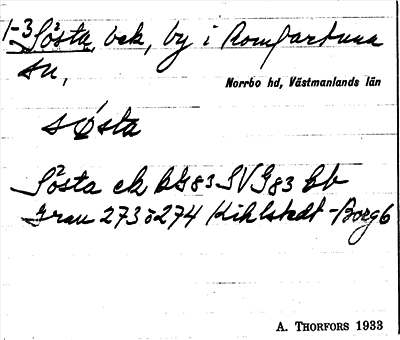 1-3 Sösta, ock, by i Romfartuna
sn,
Norrbo hd, Västmanlands län
søsta
Sösta ek bG83 SVG83 bb
Gran 273 o 274 Kihlstedt-Borg 6
A. THORFORS 1933